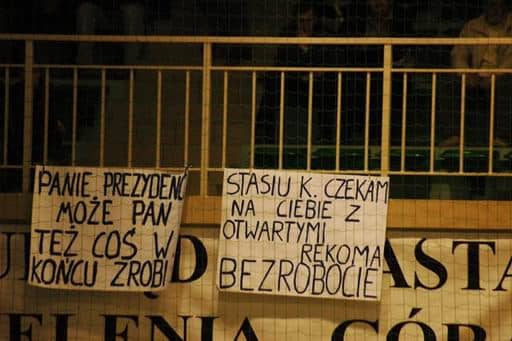 PANIE PREZYDENC
MOŻE PAN
TEŻ COŚ W
KOŃCU ZROBI
STASIU K. CZEKAM
NA CIEBIE Z
OTWARTYMI
RĘKOMA
BEZROBOCIE
ASTA
ELENIA GÓR